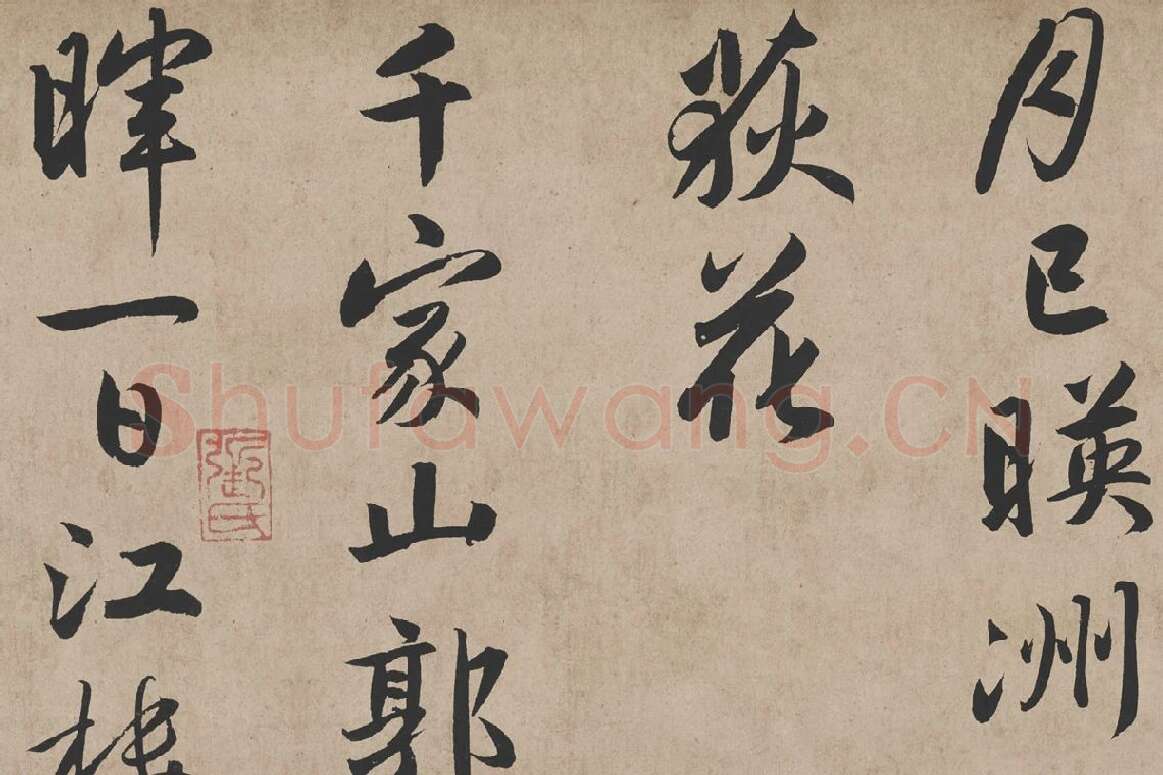 月已暎洲
荻花
千家山郭
暉一日江楼
Shufawang.CN